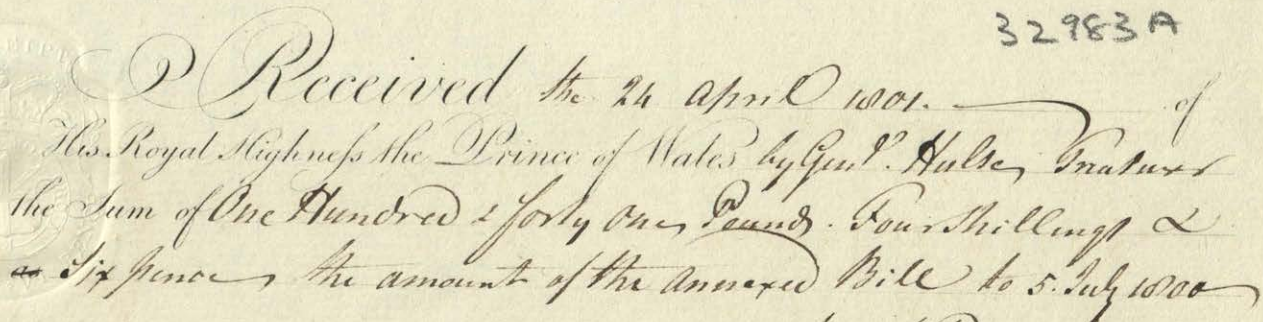 32983A
Received the 24 April 1801. of
His Royal Highness the Prince of Wales by Genl. Hulse, Treasurer
the Sum of One Hundred & forty one Pounds. Four Shillings &
Six pence, the amount of the annexed Bill to 5. July 1800